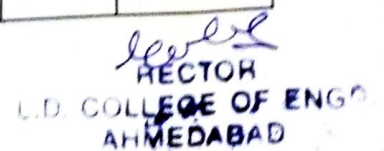 RECTOR
L.D. COLLEGE OF ENGG
AHMEDABAD